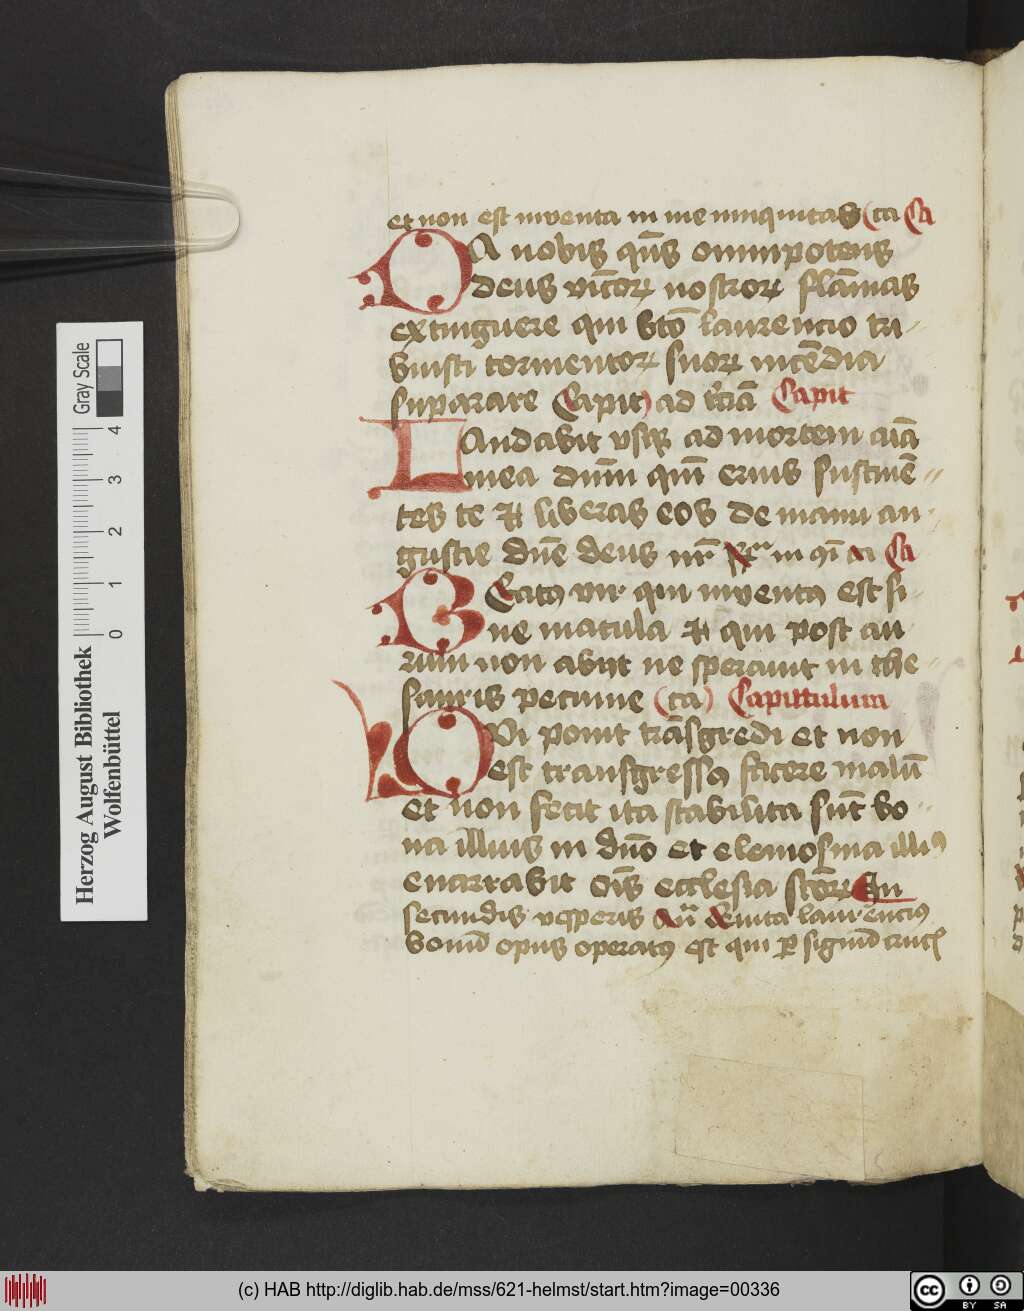 et non est inventa in me iniquitas (ta Ca
DA nobis qs̄ omnipotens
deus vic̄orꝝ nostrorꝝ flāmas
extinguere qui bto laurencio tri
buisti tormentorꝝ suorꝝ incēdia
suparare Capit) ad tc̄iā Capit
Laudabit vsqꝫ ad mortem aīa
mea dnm̄ qm̄ eruis sustinē
tes te et liberas eos de manu an
gustie dn̄e deus nr̄ in Ca
BEatꝰ vir qui inventꝰ est si
ne macula et qui post au
rum non abijt ne speravit in the
sauris pecunie (ta) Capittulum
QVi potuit trāsgredi et non
est transgressꝰ facere malū
et non fecit ita stabilita sūt bo
na illius in dn̄o et elemosina illiꝰ
enarrabit oīs ecclesia scōrꝝ In
secundis vesperis añ levita laurenciꝰ
bonū opus operatꝰ est qui ꝑ signū crucꝭ
Herzog August Bibliothek
Wolfenbüttel
0 1 2 3 4
Gray Scale
(c) HAB http://diglib.hab.de/mss/621-helmst/start.htm?image=00336
cc BY SA